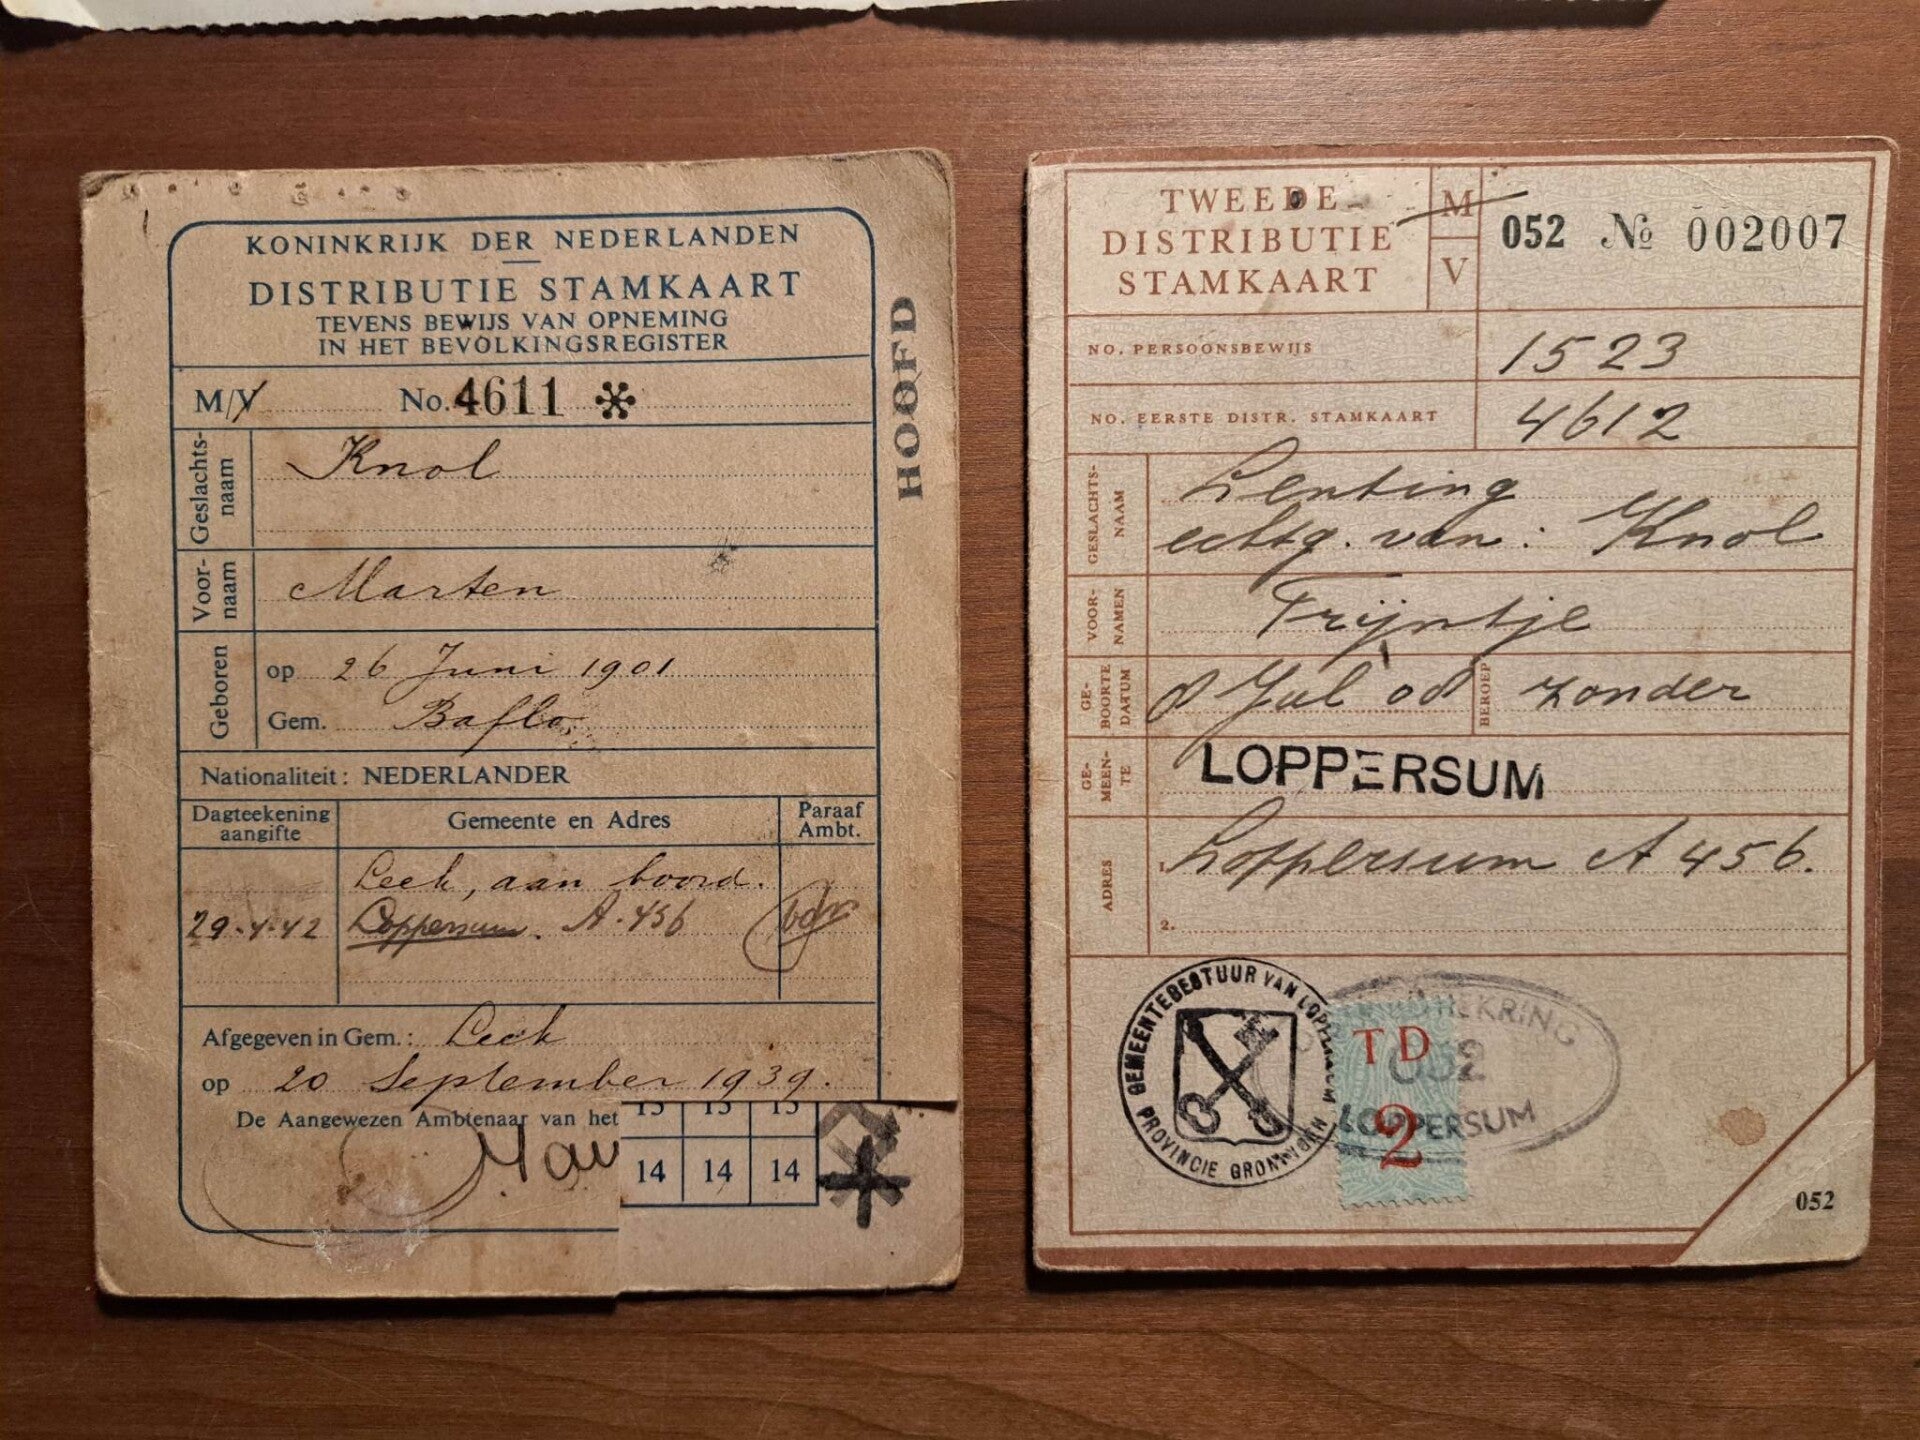 KONINKRIJK DER NEDERLANDEN
DISTRIBUTIE STAMKAART
TEVENS BEWIJS VAN OPNEMING
IN HET BEVOLKINGSREGISTER
M/V No. 4611
HOOFD
Geslachts-
naam
Knol
Voor-
naam
Marten
Geboren
op 26 Juni 1901
Gem. Baflo
Nationaliteit: NEDERLANDER
Dagteekening
aangifte
Gemeente en Adres
Paraaf
Ambt.
Leek, aan boord.
29-4-42 Loppersum. A.456
Afgegeven in Gem.: Leek
op 20 September 1939.
De Aangewezen Ambtenaar van het
13 13 13
14 14 14
TWEEDE
DISTRIBUTIE
STAMKAART
M
V
052 No 002007
NO. PERSOONSBEWIJS 1523
NO. EERSTE DISTR. STAMKAART 4612
GESLACHTS-
NAAM
Lenting
echtg. van: Knol
VOOR-
NAMEN
Trijntje
GE-
BOORTE
DATUM
8 Jul 08
BEROEP
zonder
GE-
MEEN-
TE
LOPPERSUM
ADRES
1. Loppersum A 456.
2.
GEMEENTEBESTUUR VAN LOPPERSUM
PROVINCIE GRONINGEN
TD
2
052
LOPPERSUM
052